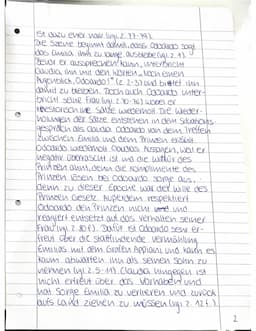 ist dazu eher naiv (vgl. Z. 37-39).
Die Szene beginnt damit, dass Odoardo sagt
dass Emilia ihm zu lange ausbleibe (vgl. Z. 1)
Bevor er aussprechen kann, unterbricht
Claudia ihn mit den Worten „Noch einen
Augenblick, Odoardo!" (Z. 2-3) und bittet ihn
damit zu bleiben. Doch auch Odoardo unter-
bricht seine Frau (vgl. Z. 30-36) wobei er
Sätze wiederholt. Die Wieder-
holungen der Sätze entstehen in dem
gespräch als Claudia Odoardo von dem Treffen
zwischen Emilia und dem Prinzen erzählt.
Odoardo wiederholt Claudias Aussagen, weil er
negativ überrascht ist und die
Prinzen ahnt, denn die Komplimente des
Prinzen lösen bei Odoardo Sorge aus,
denn zu dieser Epoche war der Wille des
Prinzen Gesetz. Außerdem respektiert
Odoardo den Prinzen nicht und
reagiert entsetzt auf das Verhalten seiner
Frau (vgl. Z. ). Dafür ist Odoardo sehr er-
freut über die stattfindende Vermählung
Emilias mit dem Grafen Appiani und kann es
kaum abwarten ihn als seinen Sohn zu
nennen (vgl. Z. 5-11). Claudia hingegen ist
nicht erfreut über das Vorhaben und
hat Sorge Emilia zu verlieren und zurück
aufs Land ziehen zu müssen (vgl. Z. 12 f.).
2